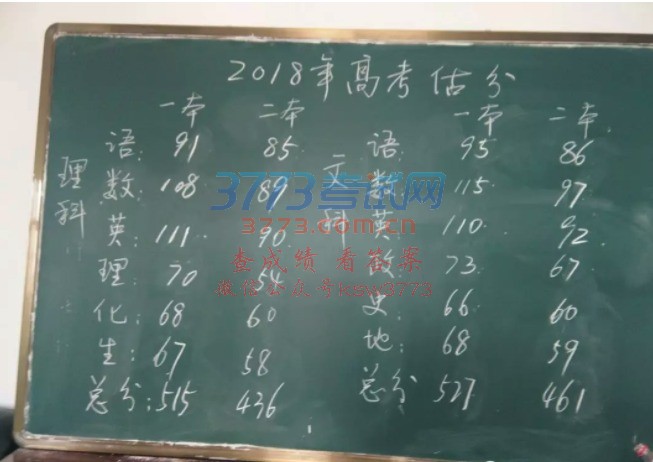 2018年高考估分
一本 二本 一本 二本
理科 文科
语: 91 85 语: 95 86
数: 108 89 数 115 97
英: 111 90 英 110 92
理: 70 54 73 67
化: 68 60 史: 66 60
生: 67 58 地: 68 59
总分: 515 436 总分: 527 461
3773考试网
3773.com.cn
查成绩 看答案
微信公众号ksw3773